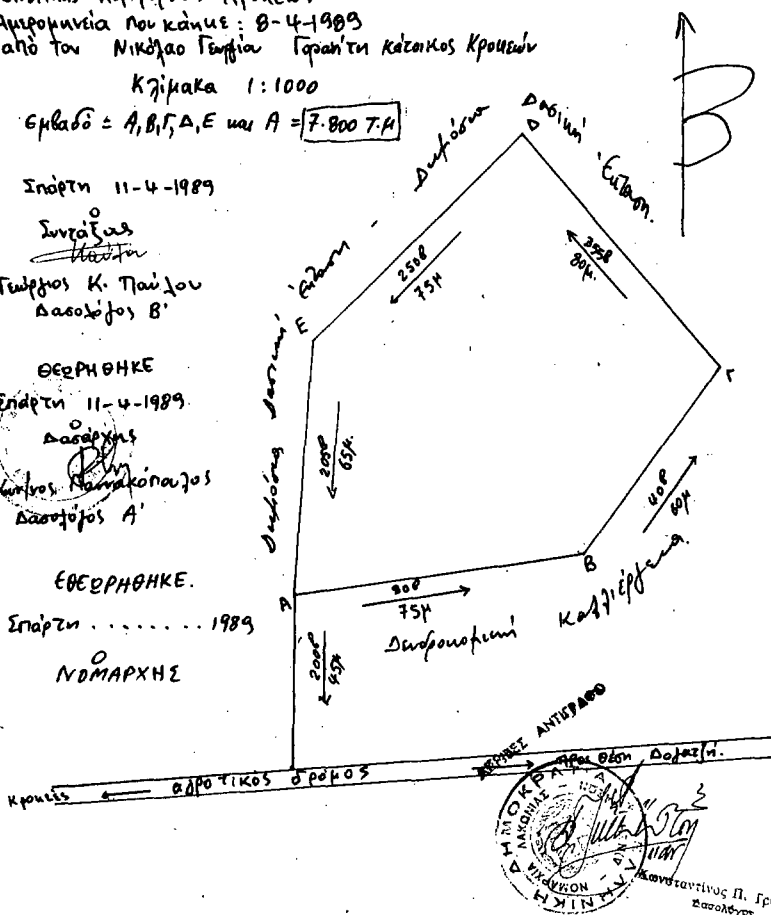 Ημερομηνία που κάηκε: 8-4-1989
από τον Νικόλαο Γεωργίου Γοράνίτη κάτοικος Κροκεών
Κλίμακα 1:1000
Εμβαδό = Α,Β,Γ,Δ,Ε και Α = 7.800 Τ.Μ
Σπάρτη 11-4-1989
Ο
Συντάξας
Γεώργιος Κ. Παύλου
Δασολόγος Β'
ΘΕΩΡΗΘΗΚΕ
Σπάρτη 11-4-1989
Ο
Δασάρχης
Δασολόγος Α'
ΕΘΕΩΡΗΘΗΚΕ.
Σπάρτη ........ 1989
Ο
ΝΟΜΑΡΧΗΣ
Β
Δημόσια Δασική Έκταση - Δημόσια Δασική Έκταση.
Δ
Ε
Γ
Β
Α
75μ
80μ.
65μ.
40θ
60μ
75μ
45μ
Δενδροκομική Καλλιέργεια.
Κροκεές
αγροτικός δρόμος
Προς θέση
ΑΚΡΙΒΕΣ ΑΝΤΙΓΡΑΦΟ
ΕΛΛΗΝΙΚΗ ΔΗΜΟΚΡΑΤΙΑ
ΝΟΜΑΡΧΙΑ ΛΑΚΩΝΙΑΣ
Κωνσταντίνος Π.
Δασολόγος